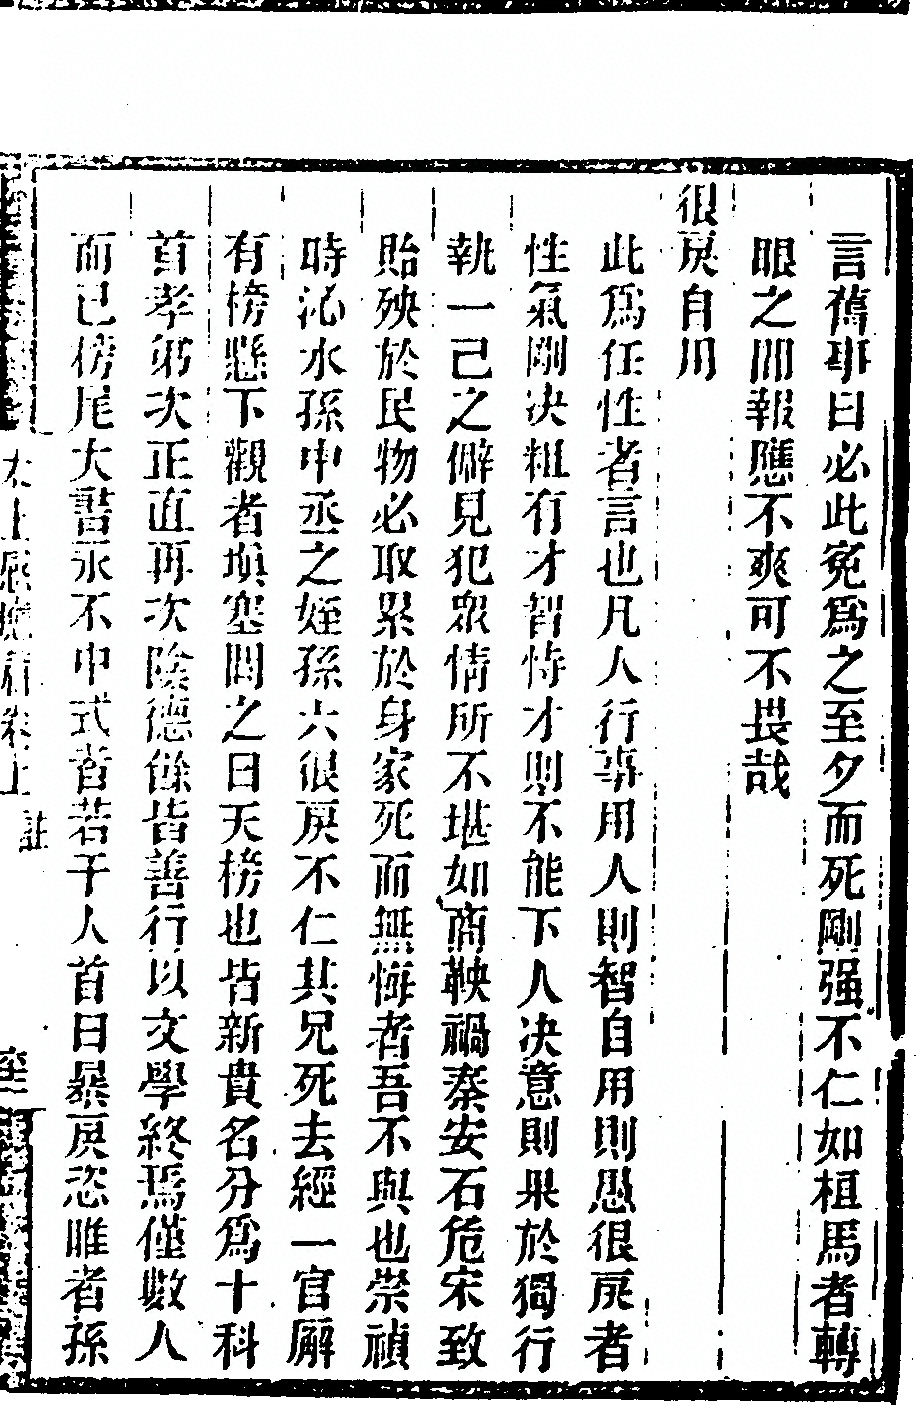 言舊事曰必此冤為之至夕而死剛强不仁如桓馬者轉
眼之間報應不爽可不畏哉
很戾自用
此為任性者言也凡人行事用人則智自用則愚很戾者
性氣剛决粗有才智恃才則不能下人决意則果於獨行
執一己之僻見犯眾情所不堪如商鞅禍秦安石危宋致
貽殃於民物必取累於身家死而無悔者吾不與也崇禎
時沁水孫中丞之姪孫六很戾不仁其兄死去經一官廨
有榜懸下觀者塡塞問之曰天榜也皆新貴名分為十科
首孝弟次正直再次陰德餘皆善行以文學終焉僅數人
而已榜尾大書永不中式者若干人首曰暴戾恣睢者孫
太上感應篇卷上
註